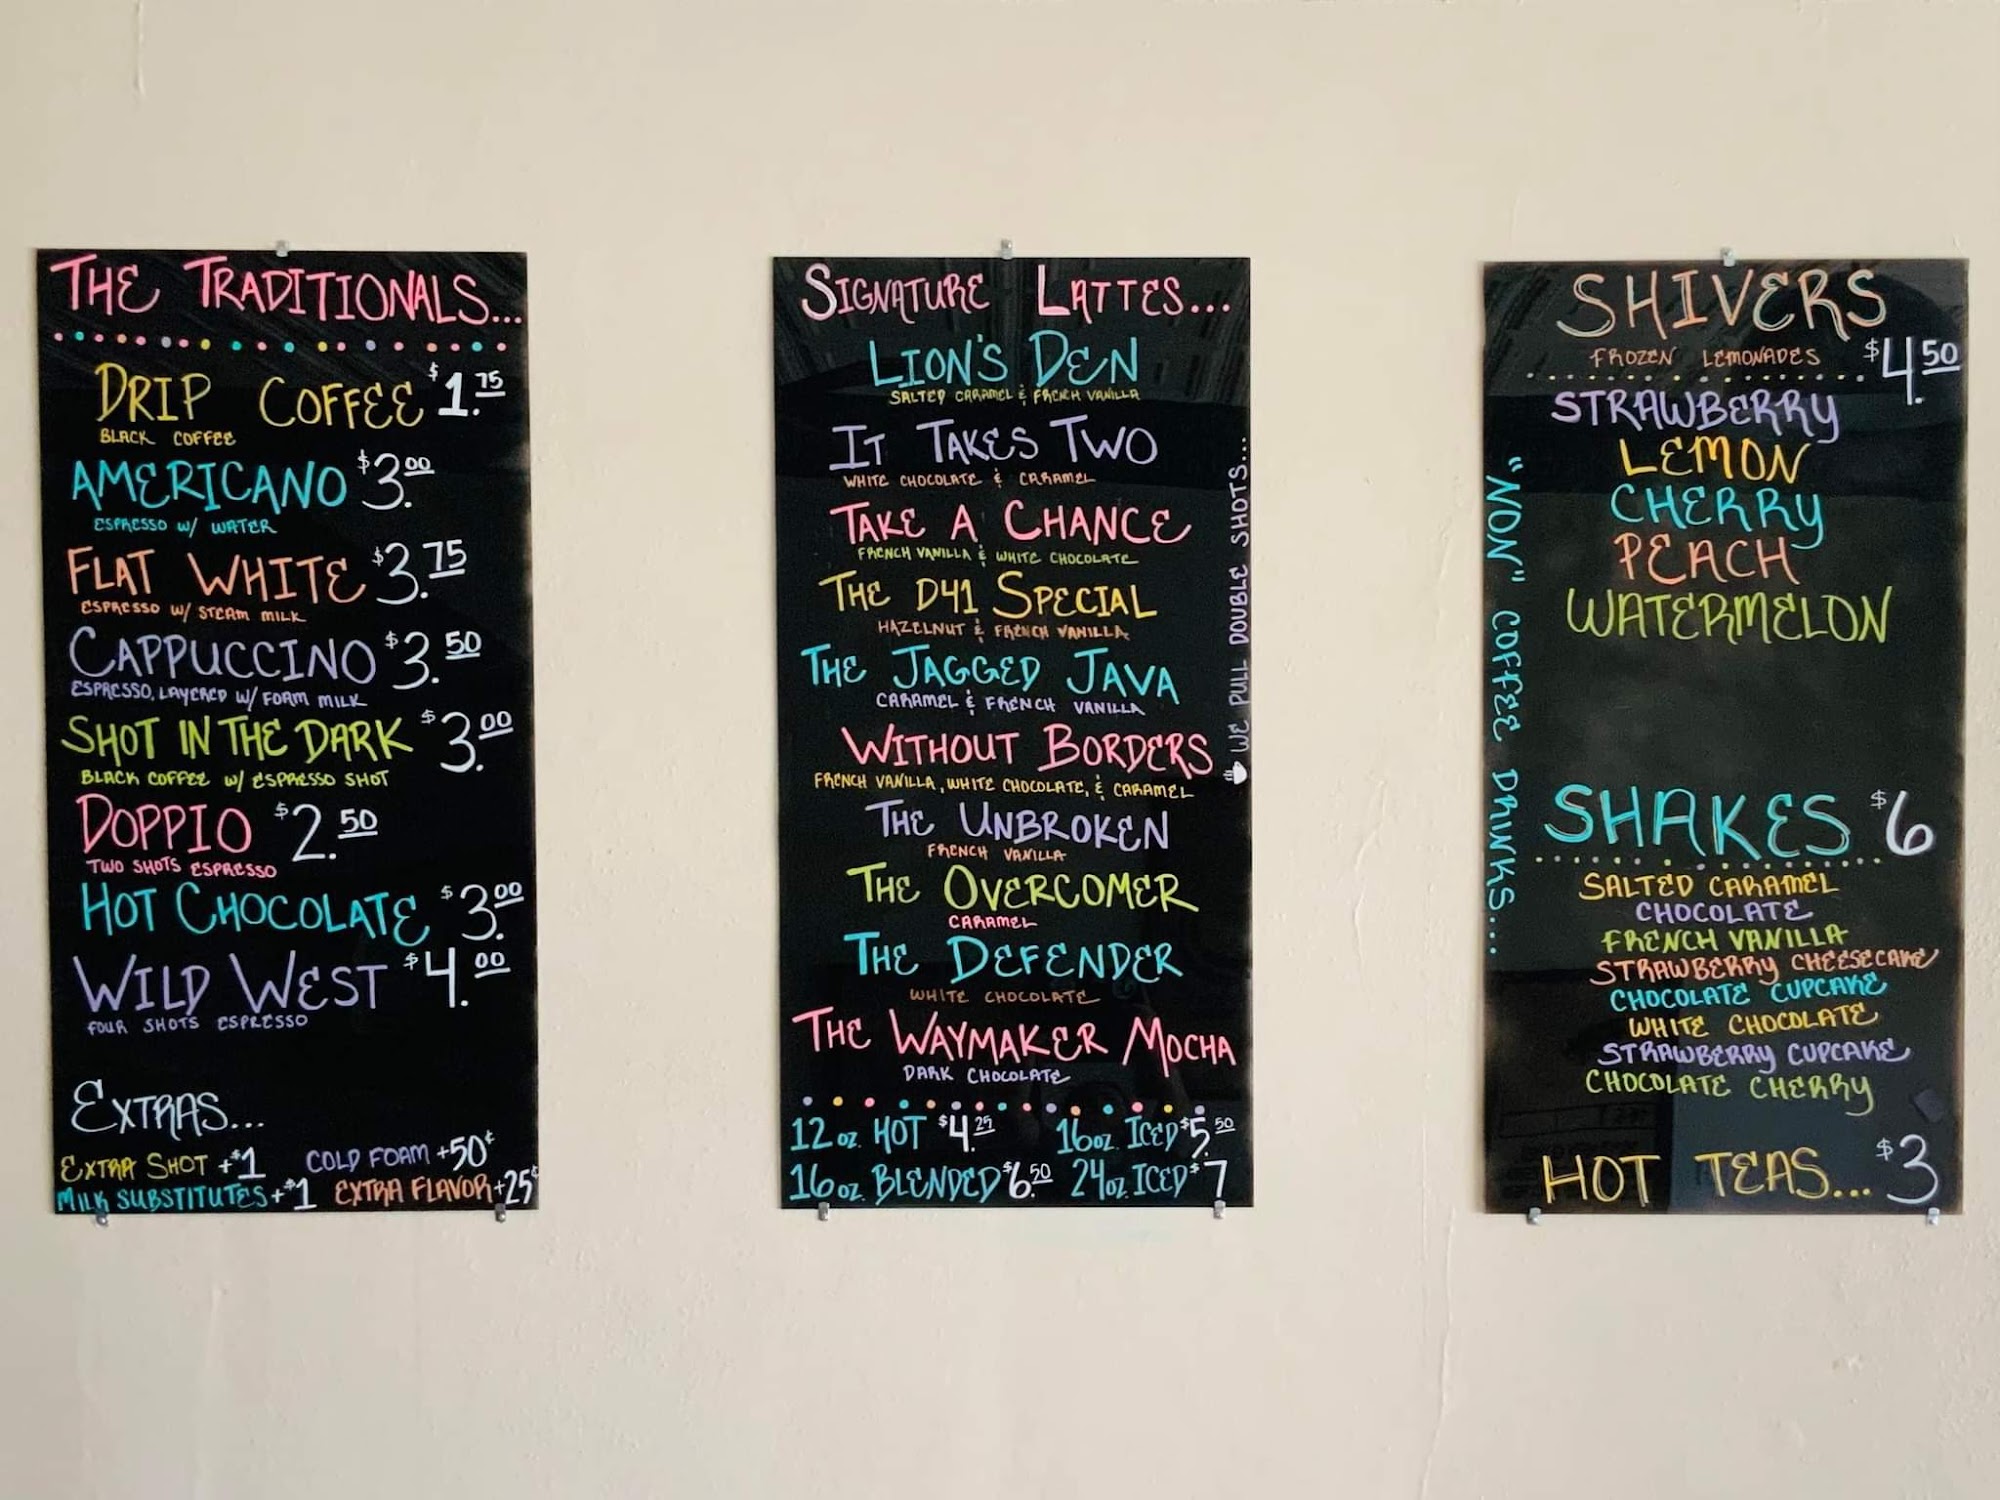 THE TRADITIONALS...
DRIP COFFEE $1.75
BLACK COFFEE
AMERICANO $3.00
ESPRESSO W/ WATER
FLAT WHITE $3.75
ESPRESSO W/ STEAM MILK
CAPPUCCINO $3.50
ESPRESSO, LAYERED W/ FOAM MILK
SHOT IN THE DARK $3.00
BLACK COFFEE W/ ESPRESSO SHOT
DOPPIO $2.50
TWO SHOTS ESPRESSO
HOT CHOCOLATE $3.00
WILD WEST $4.00
FOUR SHOTS ESPRESSO
EXTRAS...
EXTRA SHOT +$1 COLD FOAM +50¢
MILK SUBSTITUTES +$1 EXTRA FLAVOR +25¢
SIGNATURE LATTES...
LION'S DEN
SALTED CARAMEL & FRENCH VANILLA
IT TAKES TWO
WHITE CHOCOLATE & CARAMEL
TAKE A CHANCE
FRENCH VANILLA & WHITE CHOCOLATE
THE D41 SPECIAL
HAZELNUT & FRENCH VANILLA
THE JAGGED JAVA
CARAMEL & FRENCH VANILLA
WITHOUT BORDERS
FRENCH VANILLA, WHITE CHOCOLATE, & CARAMEL
THE UNBROKEN
FRENCH VANILLA
THE OVERCOMER
CARAMEL
THE DEFENDER
WHITE CHOCOLATE
THE WAYMAKER MOCHA
DARK CHOCOLATE
12 oz. HOT $4.25 16oz. ICED $5.50
16 oz. BLENDED $6.50 24oz. ICED $7
WE PULL DOUBLE SHOTS...
SHIVERS
FROZEN LEMONADES $4.50
STRAWBERRY
LEMON
CHERRY
PEACH
WATERMELON
SHAKES $6
SALTED CARAMEL
CHOCOLATE
FRENCH VANILLA
STRAWBERRY CHEESECAKE
CHOCOLATE CUPCAKE
WHITE CHOCOLATE
STRAWBERRY CUPCAKE
CHOCOLATE CHERRY
HOT TEAS... $3
"NON" COFFEE DRINKS...